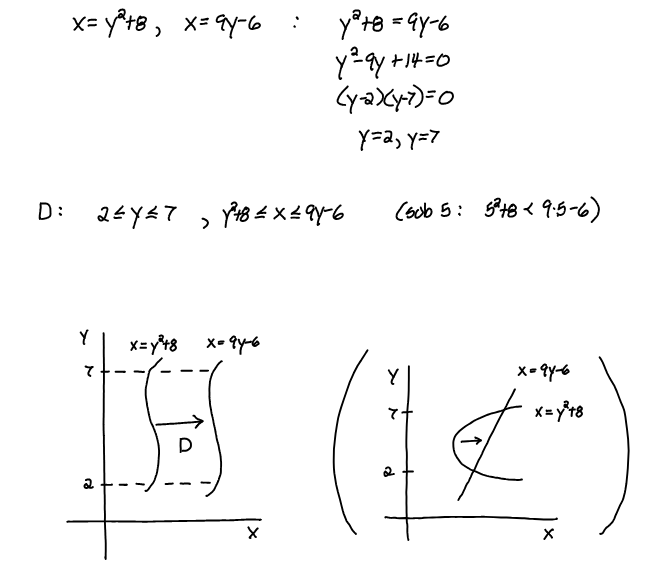 x = y²+8 , x = 9y-6 : y²+8 = 9y-6
y²-9y+14=0
(y-2)(y-7)=0
y=2, y=7
D: 2 ≤ y ≤ 7 , y²+8 ≤ x ≤ 9y-6 (sub 5: 5²+8 < 9·5-6)
y x=y²+8 x=9y-6
7
D
2
x
y x=9y-6
7 x=y²+8
2
x